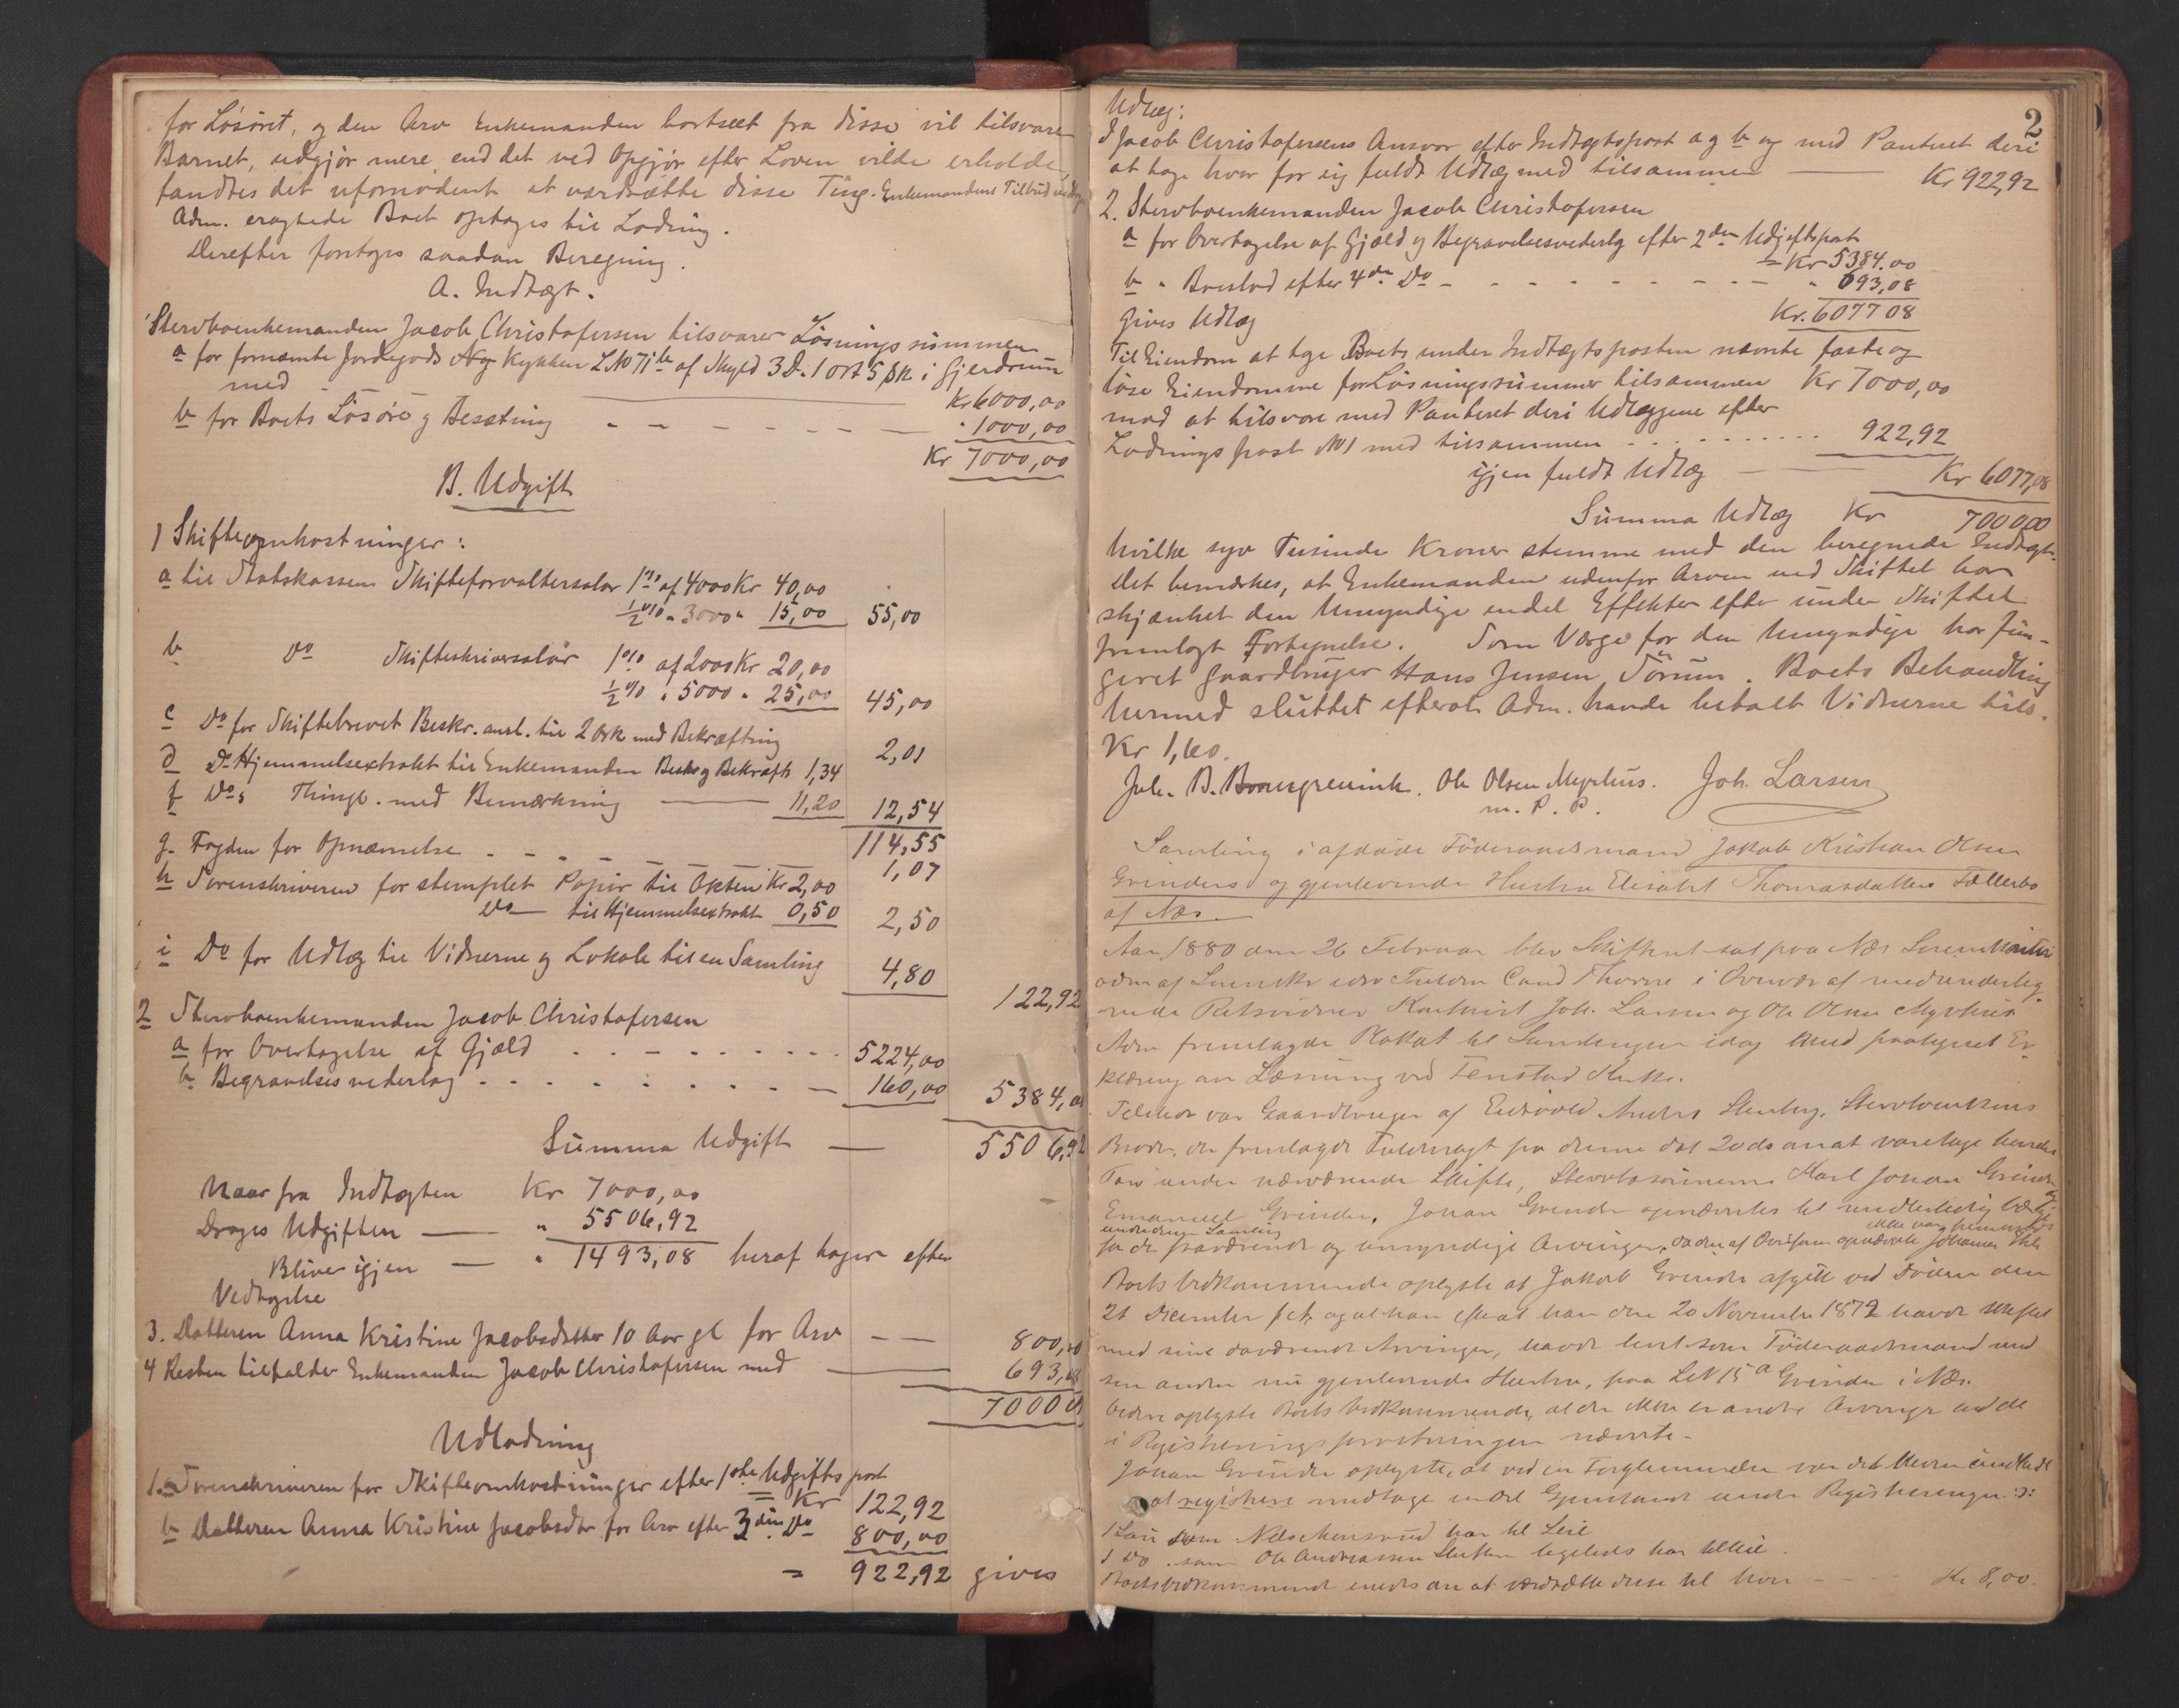 for Løsøret, og den Arv Enkemanden bortseet fra disse vil tilsvare
Barnet, udgjør mere, end det ved Opgjør efter Loven vilde erholde,
fandtes det ufornødent at værdsætte disse Ting. Enkemandens Tilbud
Adm. eragtede Boet optages til Lodning.
Derefter foretoges saadan Beregning.
A. Indtægt.
Stervboenkemanden Jacob Christofersen tilsvarer Løsningssummen
a for fornævnte Jordegods Kykken L No 71 af Skyld 3 D. 1 ort 5 sk i Gjerdrum
med Kr 6000,00
b for Boets Løsøre og Besætning - - - - - - " 1000,00
Kr 7000,00
B. Udgift
1 Skifteomkostninger:
a til Statskassen Skifteforvaltersalær 1 % af 4000 Kr 40,00
1/2 % " 3000 " 15,00 55,00
b do Skifteskriversalær 1 % af 2000 Kr 20,00
1/2 % " 5000 " 25,00 45,00
c Do for Skiftebrevet Beskr. ansl. til 2 Ark med Bekræftning 2,01
d Do Hjemmelsextrakt til Enkemanden Beskr og Bekræft 1,34
f Do s Thingl. med Bemærkning 11,20 12,54
114,55
g. Fogden for Opnævnelse - - - - 1,07
h Sorenskriveren for stemplet Papir til Akten Kr 2,00
Do til Hjemmelsextrakt 0,50 2,50
i Do for Udlæg til Vidnerne og Lokale til en Samling 4,80
122,92
2 Stervboenkemanden Jacob Christofersen
a for Overtagelse af Gjæld 5224,00
b. Begravelsesvederlag 160,00 5384,00
Summa Udgift 5506,92
Naar fra Indtægten Kr 7000,00
Drages Udgiften " 5506,92
Bliver igjen " 1493,08 heraf tager efter
Vedtagelse
3. Datteren Anna Kristine Jacobsdatter 10 Aar gl for Arv 800,00
4 Resten tilfalder Enkemanden Jacob Christofersen med 693,08
7000 00
Udlodning
1. a Sorenskriveren for Skifteomkostninger efter 1ste Udgiftspost
Kr 122,92
b Datteren Anna Kristine Jacobsdtr for Arv efter 3die Do 800,00
= 922,92 gives
2
Udlæg:
I Jacob Christofersens Ansvar efter Indtægtspost a og b og med Panteret deri
at tage hver for sig fuldt Udlæg med tilsammen Kr 922,92
2. Stervboenkemanden Jacob Christofersen
a for Overtagelse af Gjæld og Begravelsesvederlag efter 2den Udgiftspost
= Kr 5384.00
b " Boeslod efter 4de Do " 693,08
gives Udlæg Kr. 6077 08
Til Eiendom at tage Boets under Indtægtsposten nævnte faste og
løse Eiendomme for Løsningssummer tilsammen Kr 7000,00
mod at tilsvare med Panteret deri Udlæggene efter
Lodningspost No 1 med tilsammen 922,92
igjen fuldt Udlæg Kr 6077,08
Summa Udlæg Kr 7000,00
hvilke syv Tusinde Kroner stemme med den beregnede Indtægt.
Det bemærkes, at Enkemanden udenfor Arven ved Skiftet har
skjænket den Umyndige endel Effekter efter under Skiftet
fremlagt Fortegnelse. Som Værge for den Umyndige har fun-
geret Gaardbruger Hans Jensen Sørum. Boets Behandling
hermed sluttet efterat Adm. havde betalt Vidnerne tils.
Kr 1,60.
Joh. B. Ole Olsen Myrhus. Joh. Larsen
m. P. P.
Samling i afdøde Føderaadsmand Jakob Kristian Olsen
Grinders og gjenlevende Hustru Elisabet Thomasdatters Fællesbo
af Næs.
Aar 1880 den 26 Februar blev Skifteret sat paa Næs
adm af ved Cand Thorne i Overvær af medunderteg-
nede Retsvidner Joh. Larsen og Ole Olsen Myrhus
Adm fremlagde Plakat til Samlingen idag med paategnet Er-
klæring om Læsning ved Fenstad Kirke.
Tilstede var Gaardbruger af Eidsvold Stenby, Stervboenkens
Broder, der fremlagde Fuldmagt fra denne dat 20 ds om at varetage hendes
Tarv under nærværende Skifte, Stervbosønnerne Karl Johan Grinder og
Emanuel Grinder. Johan Grinder opnævntes til midlertidig Værge
under denne Samling
for de fraværende og umyndige Arvinger, Johannes
Boets Vedkommende oplyste at Jakob Grinder afgik ved Døden den
21 December f A. og at han efterat han den 20 November 1872 havde skiftet
med sine daværende Arvinger, havde levet som Føderaadsmand med
sin anden nu gjenlevende Hustru, paa L N 15 a Grinder i Næs.
Videre oplyste Boets Vedkommende, at der ikke er andre Arvinger end de
i Registreringsforretningen nævnte.
Johan Grinder oplyste, at ved en Forglemmelse var det bleven undladt
at registrere endel Gjenstande under Registreringen :
1 som har til Leie
1 Do. som Ole Andreassen ligeledes har til Leie.
Boets Vedkommende enedes om at værdsætte disse til Kr 8,00.